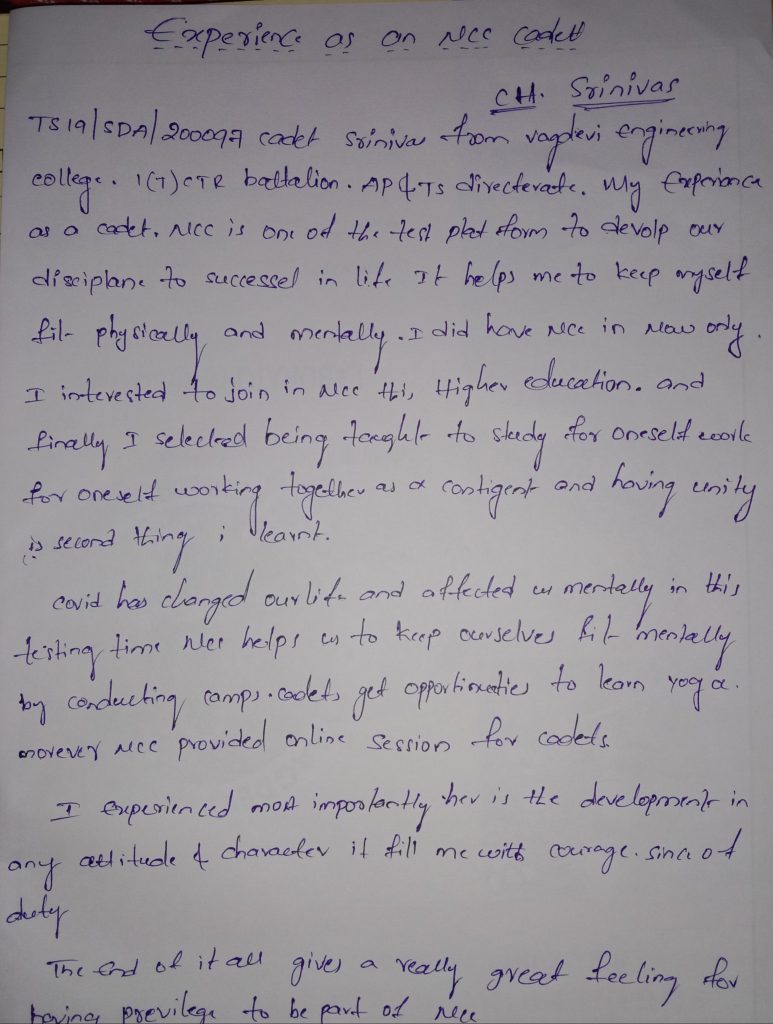 Experience as an NCC Cadet
CH. Srinivas
TS19/SDA/200097 cadet Srinivas from vagdevi engineering
college. 1(T)CTR battalion. AP & TS directerate. My Experiance
as a cadet. NCC is one of the test plat form to devolp our
disciplane to successel in life It helps me to keep myself
fit physically and mentally. I did have NCC in Now only.
I interested to join in NCC this Higher education. and
finally I selected being taught to study for oneself work
for oneself working together as a contigent and having unity
is second thing i learnt.
covid has changed our life and affected us mentally in this
testing time NCC helps us to keep ourselves fit mentally
by conducting camps. cadets get opportionaties to learn yoga.
morever NCC provided online session for cadets.
I experienced most importantly her is the development in
any attitude & character it fill me with courage. since of
duty
The End of it all gives a really great feeling for
having previlege to be part of NCC